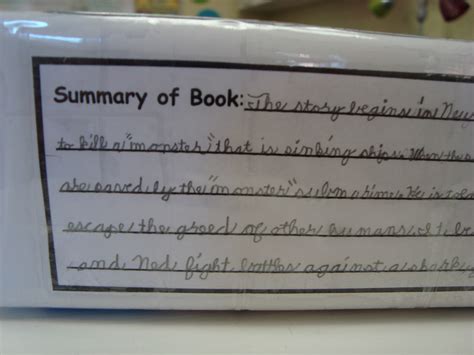 Summary of Book: The story begins in New
to kill a "monster" that is sinking ships. When the
are saved by the "monster" submarine. He is
escape the greed of other humans.
and Ned fight battles against a shark